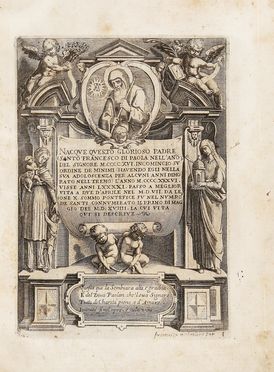 NACQVE QVESTO GLORIOSO PADRE
SANTO FRANCESCO DI PAOLA NELL'ANO
DEL SIGNORE M.CCCC.XVI. INCOMINCIO SV
ORDINE DE MINIMI HAVENDO EGLI NELLA
SVA ADOLOSCENZA PER ALCVNI ANNI DIMO
RATO NELL'EREMO L'ANNO M.CCCC.XXXVI.
VISSE ANNI LXXXXI. PASSO A MEGLIOR
VITA A DVE D'APRILE NEL M.D.VII. DA LE
ONE X. SOMMO PONTEFICE FV NEL NVMERO
DE SANTI CONNVMERATO IL PRIMO DI MAG
GIO DEL M.D.XVIII. LA CVI VITA
QVI SI DESCRIVE
la Sembianza alta e gradita
E del Paolan che
Tutto di Charità pieno e d'Amore